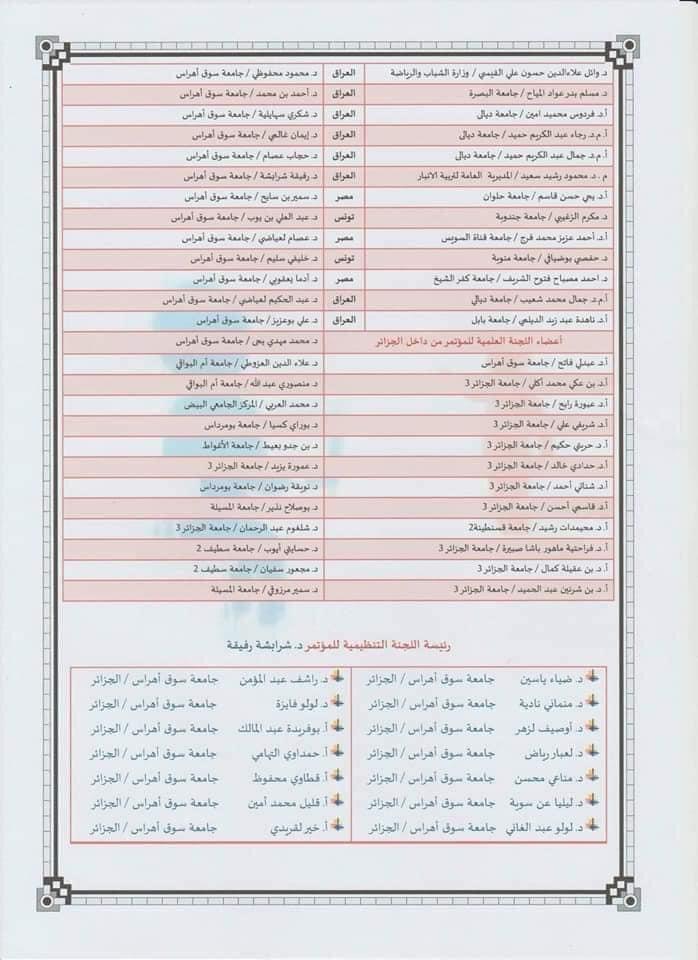 د. وائل علاءالدين حسون علي القيمي / وزارة الشباب والرياضة العراق د. محمود محفوظي / جامعة سوق أهراس
د. مسلم بدر عواد المياح / جامعة البصرة العراق د. أحمد بن محمد / جامعة سوق أهراس
أ.د. فردوس محميد امين / جامعة ديالى العراق د. شكري سهايلية / جامعة سوق أهراس
أ.م.د. رجاء عبد الكريم حميد / جامعة ديالى العراق د. إيمان غالمي / جامعة سوق أهراس
أ.م.د. جمال عبد الكريم حميد / جامعة ديالى العراق د. حجاب عصام / جامعة سوق أهراس
م . د. محمود رشيد سعيد / المديرية العامة لتربية الانبار العراق د. رفيقة شرابشة / جامعة سوق أهراس
أ.د. يحي حسن قاسم / جامعة حلوان مصر د. سمير بن سايح / جامعة سوق أهراس
د. مكرم الزغيبي / جامعة جندوبة تونس د. عبد العلي بن يوب / جامعة سوق أهراس
أ.د. أحمد عزيز محمد فرج / جامعة قناة السويس مصر د. عصام لعياضي / جامعة سوق أهراس
د. حفصي بوضيافي / جامعة منوبة تونس د. خليفي سليم / جامعة سوق أهراس
د. احمد مصباح فتوح الشريف / جامعة كفر الشيخ مصر د. أدما يعقوبي / جامعة سوق أهراس
أ.م.د. جمال محمد شعيب / جامعة ديالي العراق د. عبد الحكيم لعياضي / جامعة سوق أهراس
أ.د. ناهدة عبد زيد الديلمي / جامعة بابل العراق د. علي بوعزيز / جامعة سوق أهراس
أعضاء اللجنة العلمية للمؤتمر من داخل الجزائر د. محمد مهدي يحي / جامعة سوق أهراس
أ.د. عبدلي فاتح / جامعة سوق أهراس د. علاء الدين العزوطي / جامعة أم البواقي
أ.د. بن عكي محمد أكلي / جامعة الجزائر 3 د. منصوري عبد الله / جامعة أم البواقي
أ.د. عبورة رابح / جامعة الجزائر 3 د. محمد العربي / المركز الجامعي البيض
أ.د. شريفي علي / جامعة الجزائر 3 د. بوراي كسيا / جامعة بومرداس
أ.د. حريتي حكيم / جامعة الجزائر 3 د. بن جدو بعيط / جامعة الأغواط
أ.د. حدادي خالد / جامعة الجزائر 3 د. عمورة يزيد / جامعة الجزائر 3
أ.د. شناتي أحمد / جامعة الجزائر 3 د. نويقة رضوان / جامعة بومرداس
أ.د. قاسمي أحسن / جامعة الجزائر 3 د. بوصلاح نذير / جامعة المسيلة
أ.د. محيمدات رشيد / جامعة قسنطينة2 د. شلغوم عبد الرحمان / جامعة الجزائر 3
أ.د. فراحتية ماهور باشا صبيرة / جامعة الجزائر 3 د. حسايني أيوب / جامعة سطيف 2
أ. د. بن عقيلة كمال / جامعة الجزائر 3 د. مجعور سفيان / جامعة سطيف 2
أ. د. بن شرنين عبد الحميد / جامعة الجزائر 3 د. سمير مرزوقي / جامعة المسيلة
رئيسة اللجنة التنظيمية للمؤتمر د. شرابشة رفيقة
د. ضياء ياسين جامعة سوق أهراس / الجزائر د. راشف عبد المؤمن جامعة سوق أهراس / الجزائر
د. منماني نادية جامعة سوق أهراس / الجزائر د. لولو فايزة جامعة سوق أهراس / الجزائر
د. أوصيف لزهر جامعة سوق أهراس / الجزائر أ. بوفريدة عبد المالك جامعة سوق أهراس / الجزائر
د. لعبار رياض جامعة سوق أهراس / الجزائر أ. حمداوي التهامي جامعة سوق أهراس / الجزائر
د. مناعي محسن جامعة سوق أهراس / الجزائر أ. قطاوي محفوظ جامعة سوق أهراس / الجزائر
د. ليليا عن سوية جامعة سوق أهراس / الجزائر أ. قليل محمد أمين جامعة سوق أهراس / الجزائر
د. لولو عبد الغاني جامعة سوق أهراس / الجزائر أ. خير لقريدي جامعة سوق أهراس / الجزائر